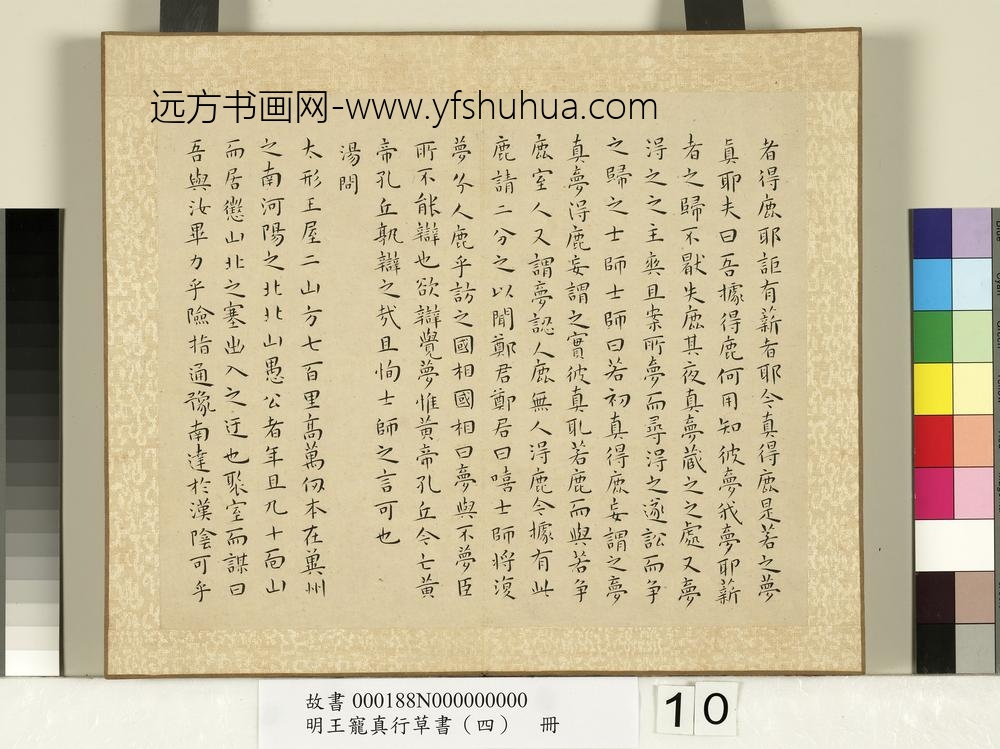 远方书画网-www.yfshuhua.com
者得鹿耶詎有薪者耶今真得鹿是若之夢
真耶夫曰吾據得鹿何用知彼夢我夢耶薪
者之歸不厭失鹿其夜真夢藏之之處又夢
得之之主爽旦案所夢而尋得之遂訟而争
之歸之士師士師曰若初真得鹿妄謂之夢
真夢得鹿妄謂之實彼真取若鹿而與若争
鹿室人又謂夢認人鹿無人得鹿今據有此
鹿請二分之以聞鄭君鄭君曰嘻士師将復
夢分人鹿乎訪之國相國相曰夢與不夢臣
所不能辯也欲辯覺夢惟黄帝孔丘今亡黄
帝孔丘孰辯之哉且恂士師之言可也
湯問
太形王屋二山方七百里高萬仞本在冀州
之南河陽之北北山愚公者年且九十面山
而居懲山北之塞出入之迂也聚室而謀曰
吾與汝畢力乎險指通豫南達於漢陰可乎
故書 000188N000000000
明王寵真行草書（四） 冊
10